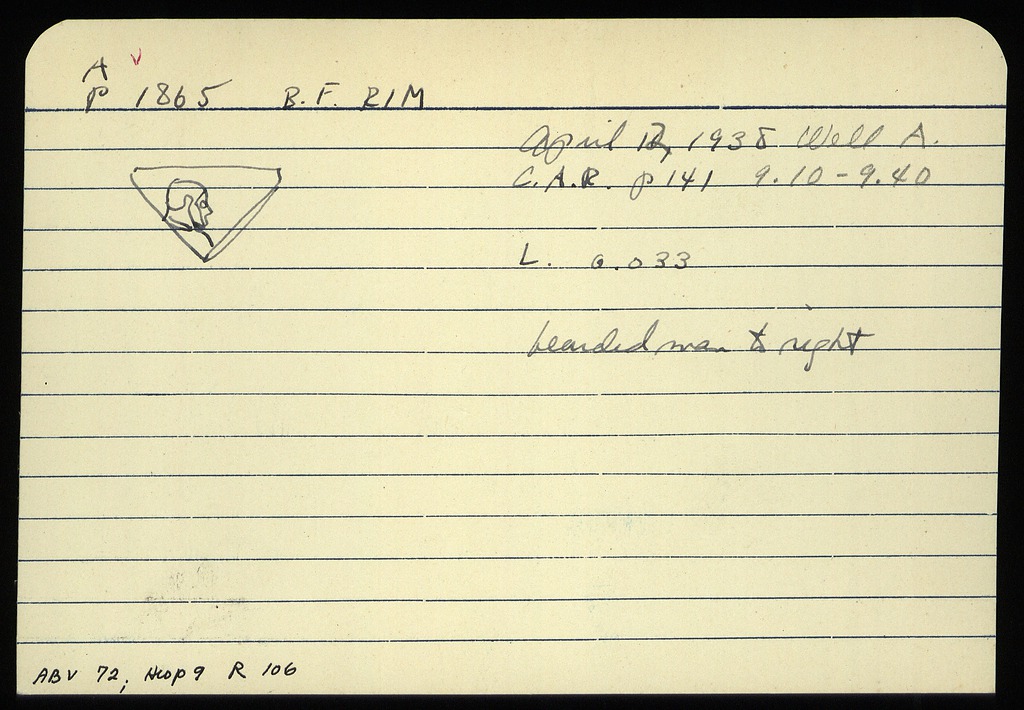 A v
P 1865 B.F. RIM
April 12, 1938 Well A.
C.A.R. p 141 9.10-9.40
L. 0.033
bearded man to right
ABV 72; R 106